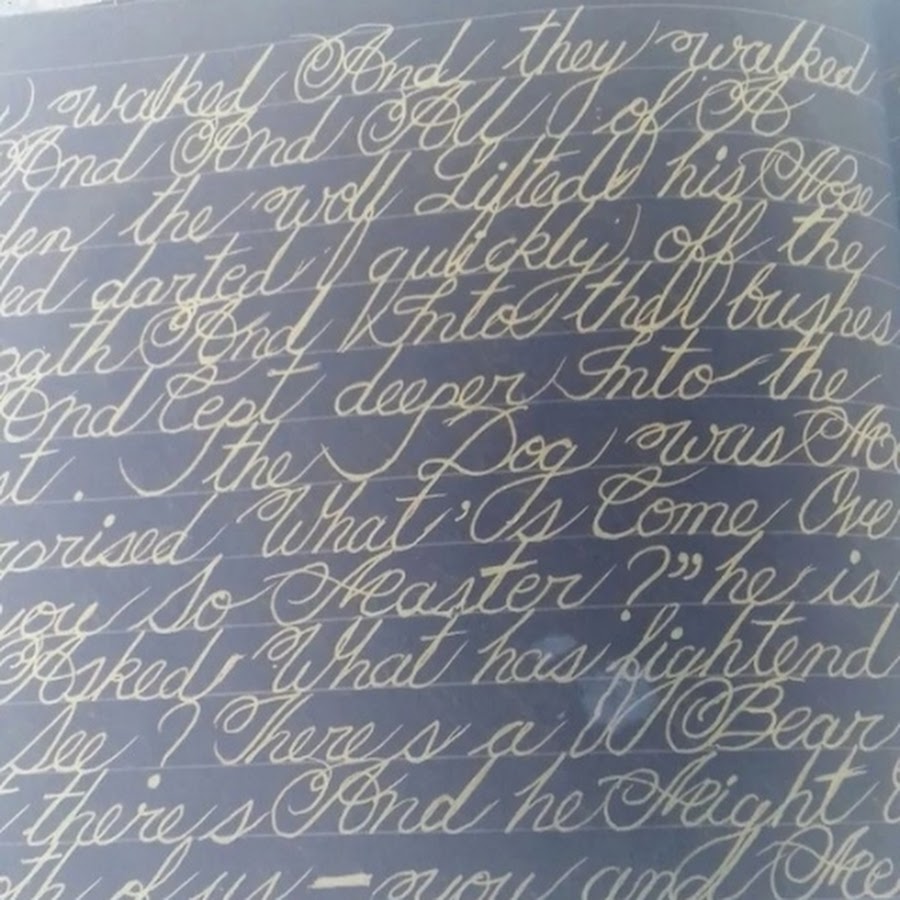 walked And they walked
And And All of A
den the wolf Lifted his Nose
ed darted quickly off the
path And Into the bushes
And Cept deeper Into the
st. the Dog was
rprised What's Come Over
you So Master ?" he is
Asked What has fightend
See ? There's a Bear
there,s And he Might
oth of us — you and Me